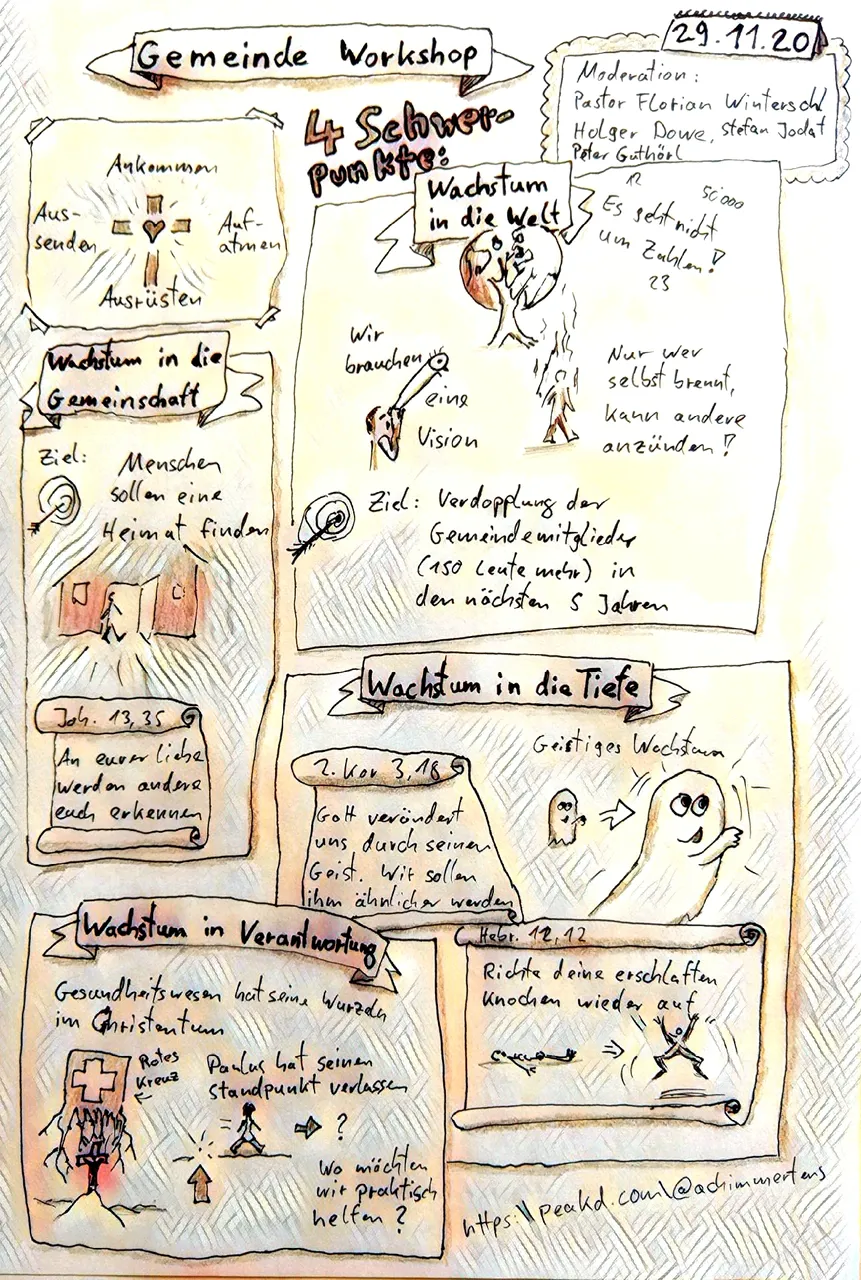 Gemeinde Workshop
29.11.20
Moderation:
Pastor Florian Winterschl
Holger Dowe, Stefan Jodat
Peter Guthörl
4 Schwer-
punkte:
Ankommen
Aus-
senden
Auf-
atmen
Ausrüsten
Wachstum
in die Welt
12
50'000
Es geht nicht
um Zahlen!
23
Wir
brauchen
eine
Vision
Nur wer
selbst brennt,
kann andere
anzünden!
Ziel: Verdopplung der
Gemeindemitglieder
(150 Leute mehr) in
den nächsten 5 Jahren
Wachstum in die
Gemeinschaft
Ziel:
Menschen
sollen eine
Heimat finden
Joh. 13,35
An eurer Liebe
werden andere
euch erkennen
Wachstum in die Tiefe
Geistiges Wachstum
2. Kor 3,18
Gott verändert
uns durch seinen
Geist. Wir sollen
ihm ähnlicher werden
Hebr. 12,12
Richte deine erschlaften
Knochen wieder auf
Wachstum in Verantwortung
Gesundheitswesen hat seine Wurzeln
im Christentum
Rotes
Kreuz
Paulus hat seinen
Standpunkt verlassen
?
Wo möchten
wir praktisch
helfen?
https:\\peakd.com\@achimmertens